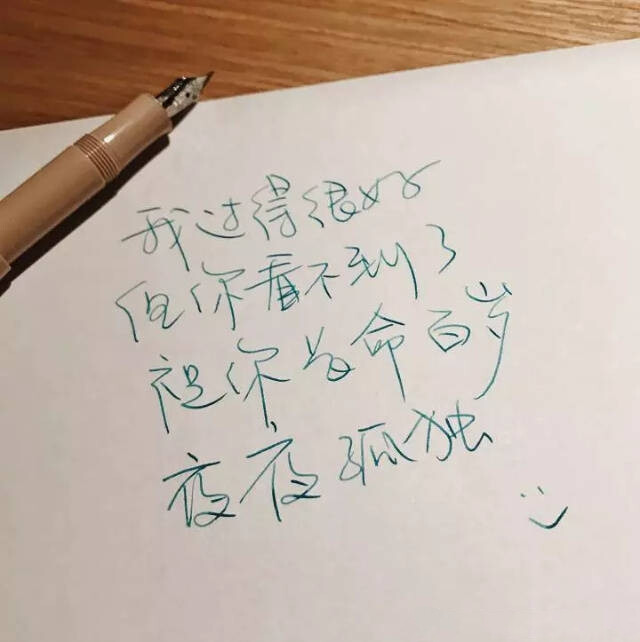 我过得很好
但你看不到了
祝你长命百岁
夜夜孤独